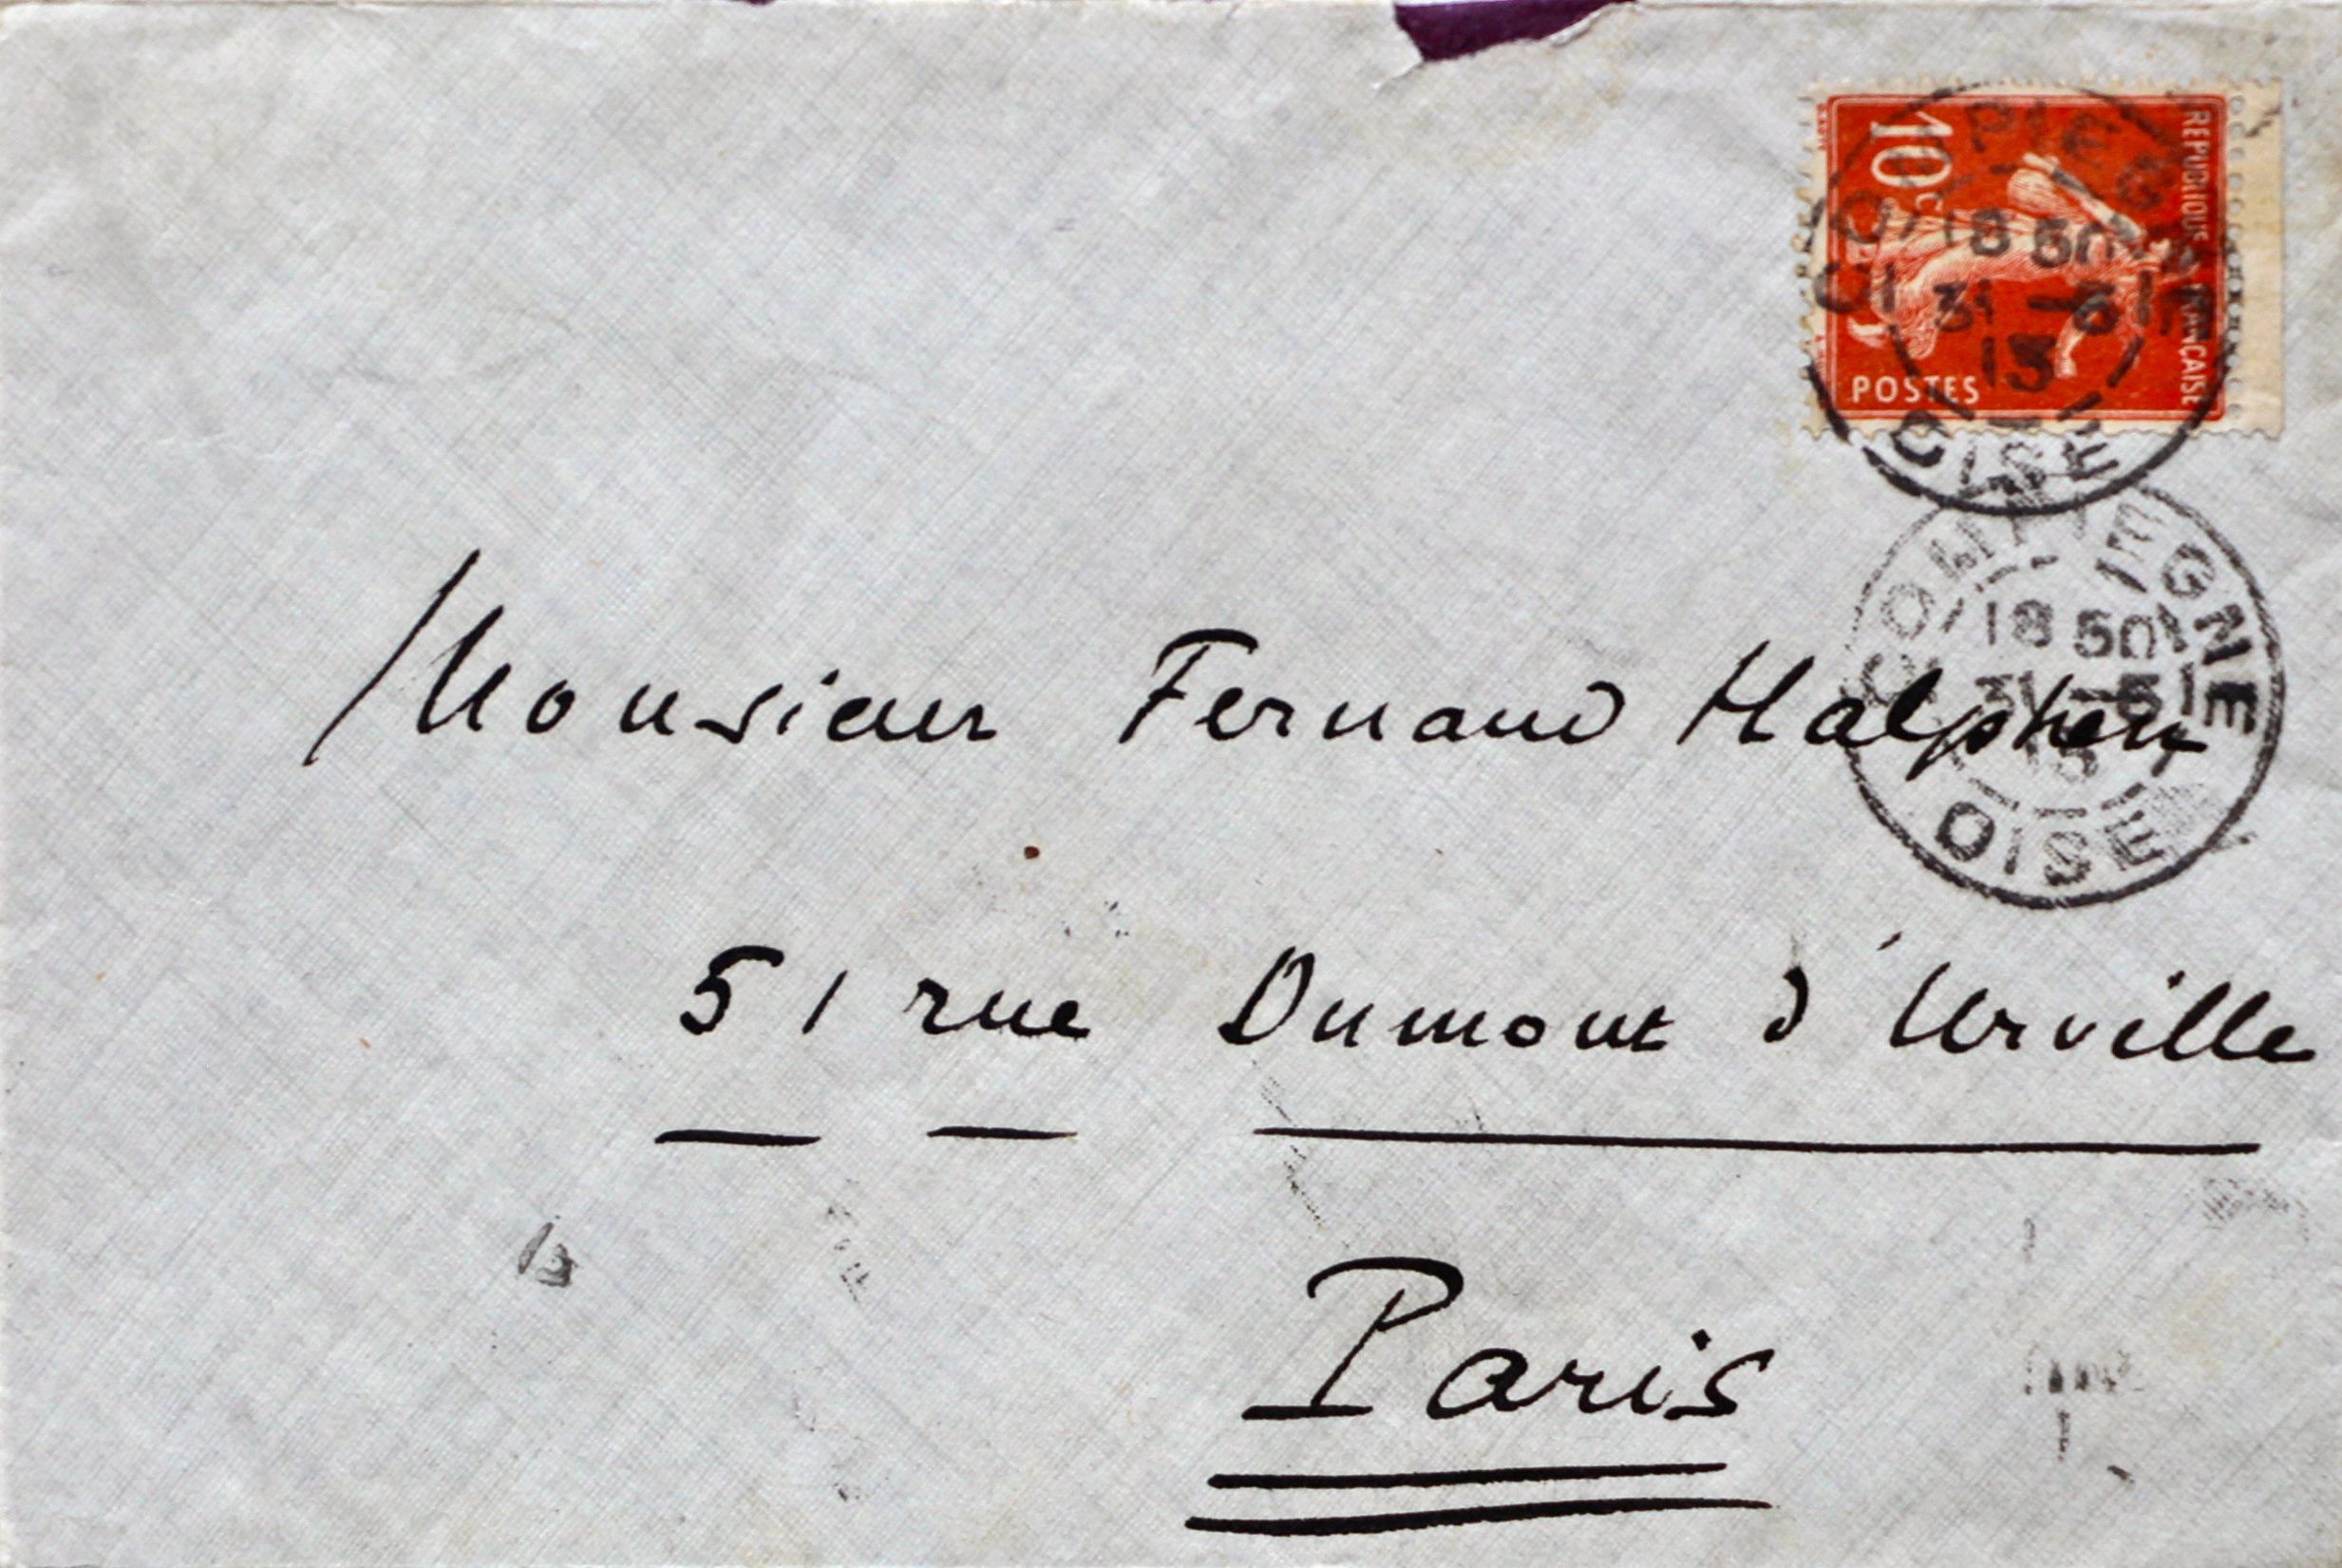 10c
REPUBLIQUE FRANÇAISE
POSTES
PIEG
18 50
31 -5
13
OISE
COMPIEGNE
18 50
31 -5
13
OISE
Monsieur Fernand Halphen
51 rue Dumont d'Urville
Paris